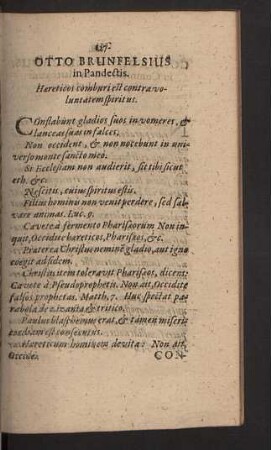 OTTO BRUNFELSIUS
in Pandectis.
Hæreticos comburi est contra vo-
luntatem spiritus.
Conflabunt gladios suos in vomeres, &
lanceas suas in falces.
Non occident, & non nocebunt in uni-
verso monte sancto meo.
Si Ecclesiam non audierit, sit tibi sicut
eth. &c.
Nescitis, cuius spiritus estis.
Filius hominis non venit perdere, sed sal-
vare animas. Luc. 9.
Cavete à fermento Pharisæorum Non in-
quit, Occidite hæreticos, Pharisæos, &c.
Præterea Christus neminē gladio, aut igne
coegit ad fidem.
Christus item toleravit Pharisæos, dicens:
Cavete à Pseudoprophetis. Non ait, Occidite
falsos prophetas. Matth. 7. Huc spectat pa-
rabola de zizania & tritico.
Paulus blasphemus erat, & tamen miseri-
cordiam est consequutus.
Hæreticum hominem devita: Non ait,
Occide.
CON-